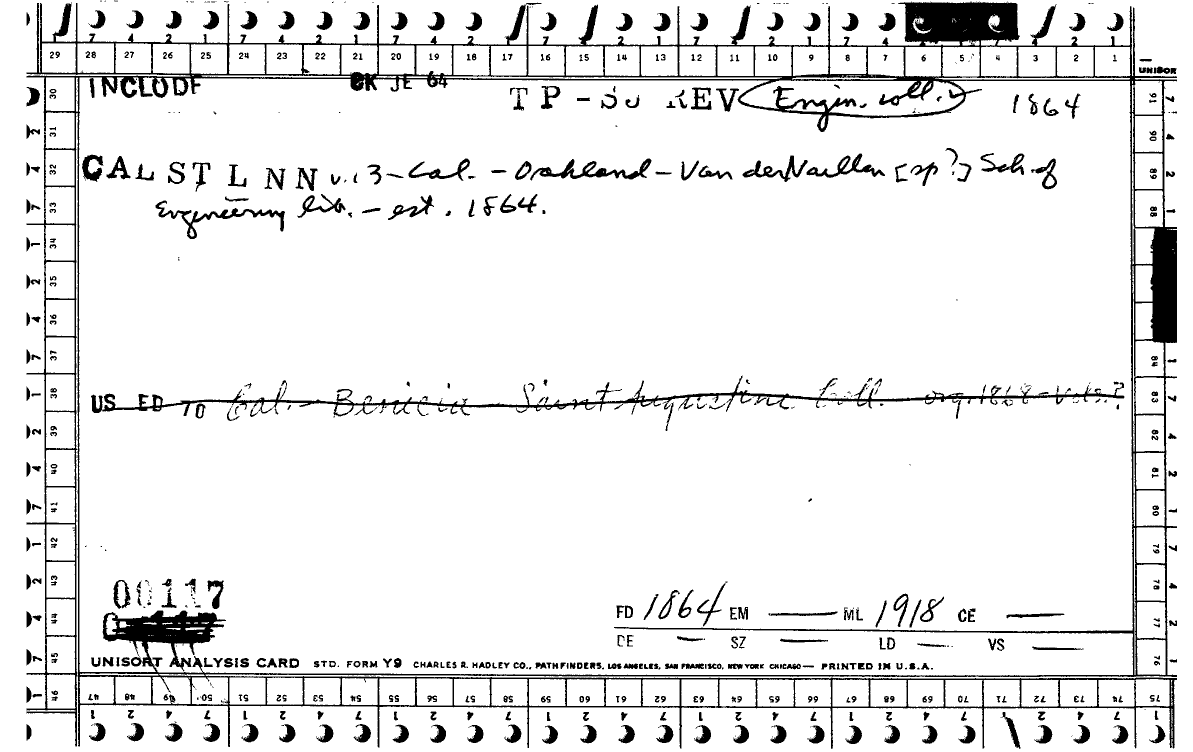 7 4 2 1 7 4 2 1 7 4 2 1 7 4 2 1 7 4 2 1 7 4 2 1 4 2 1
29 28 27 26 25 24 23 22 21 20 19 18 17 16 15 14 13 12 11 10 9 8 7 6 5 4 3 2 1
UNISOR
INCLUDE CK JE 64 TP-SU REV Engin. coll. 1864
CAL ST L NN v. 13-Cal. - Oakland - Van der Naillen [sp?] Sch of
Engineering lib. - est. 1864.
US ED TO Cal. - Benicia - Saint Augustine Coll. org. 1868 - Vols.?
00117
FD 1864 EM — ML 1918 CE —
DE — SZ — LD — VS —
UNISORT ANALYSIS CARD STD. FORM Y9 CHARLES R. HADLEY CO., PATHFINDERS, LOS ANGELES, SAN FRANCISCO, NEW YORK CHICAGO — PRINTED IN U.S.A.
30 31 32 33 34 35 36 37 38 39 40 41 42 43 44 45 46
91 90 89 88 84 83 82 81 80 79 78 77 76 75
47 48 49 50 51 52 53 54 55 56 57 58 59 60 61 62 63 64 65 66 67 68 69 70 71 72 73 74